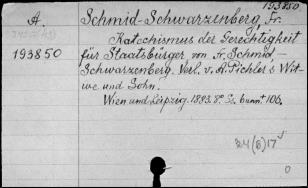 193850
A. Schmid-Schwarzenberg, Fr.
Katechismus der Gerechtigkeit
193850 für Staatsbürger von Fr. Schmid,-
Schwarzenberg. Verl. v. A. Pichler's Wit-
we und Sohn.
Wien und Leipzig. 1893. 8°. Ss. 106.
24(8)17